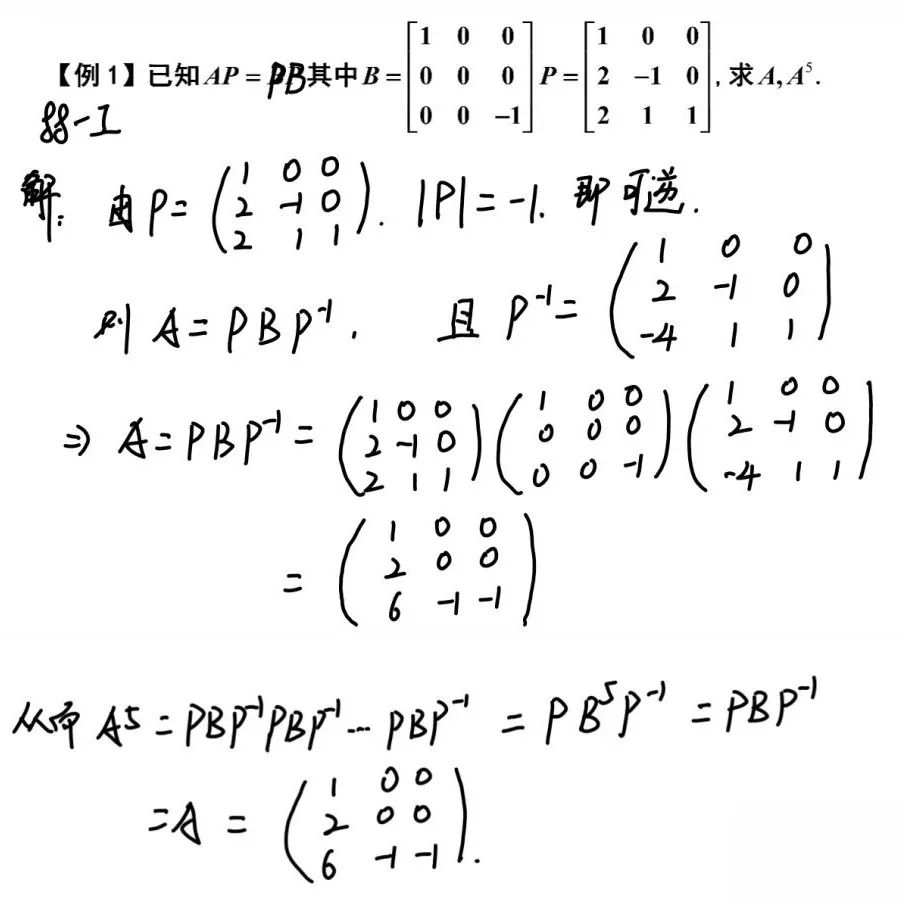 【例1】已知 AP = PB其中 B = [1 0 0; 0 0 0; 0 0 -1] P = [1 0 0; 2 -1 0; 2 1 1], 求 A, A⁵.
88-I
解: 由 P = (1 0 0; 2 -1 0; 2 1 1). |P| = -1. 即可逆.
则 A = PBP⁻¹. 且 P⁻¹ = (1 0 0; 2 -1 0; -4 1 1)
⇒ A = PBP⁻¹ = (1 0 0; 2 -1 0; 2 1 1)(1 0 0; 0 0 0; 0 0 -1)(1 0 0; 2 -1 0; -4 1 1)
= (1 0 0; 2 0 0; 6 -1 -1)
从而 A⁵ = PBP⁻¹PBP⁻¹ ... PBP⁻¹ = PB⁵P⁻¹ = PBP⁻¹
= A = (1 0 0; 2 0 0; 6 -1 -1).